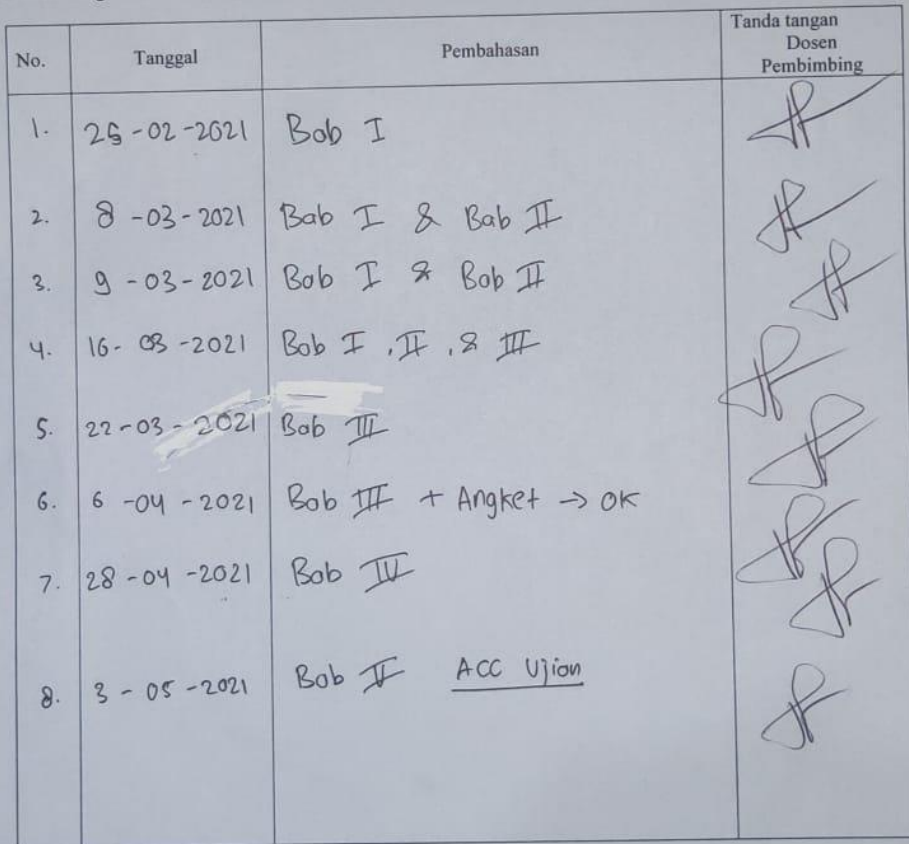 No. Tanggal Pembahasan Tanda tangan
Dosen
Pembimbing
1. 25-02-2021 Bab I
2. 8-03-2021 Bab I & Bab II
3. 9-03-2021 Bab I & Bab II
4. 16-03-2021 Bab I, II, & III
5. 22-03-2021 Bab III
6. 6-04-2021 Bab III + Angket → OK
7. 28-04-2021 Bab IV
8. 3-05-2021 Bab V ACC Ujian